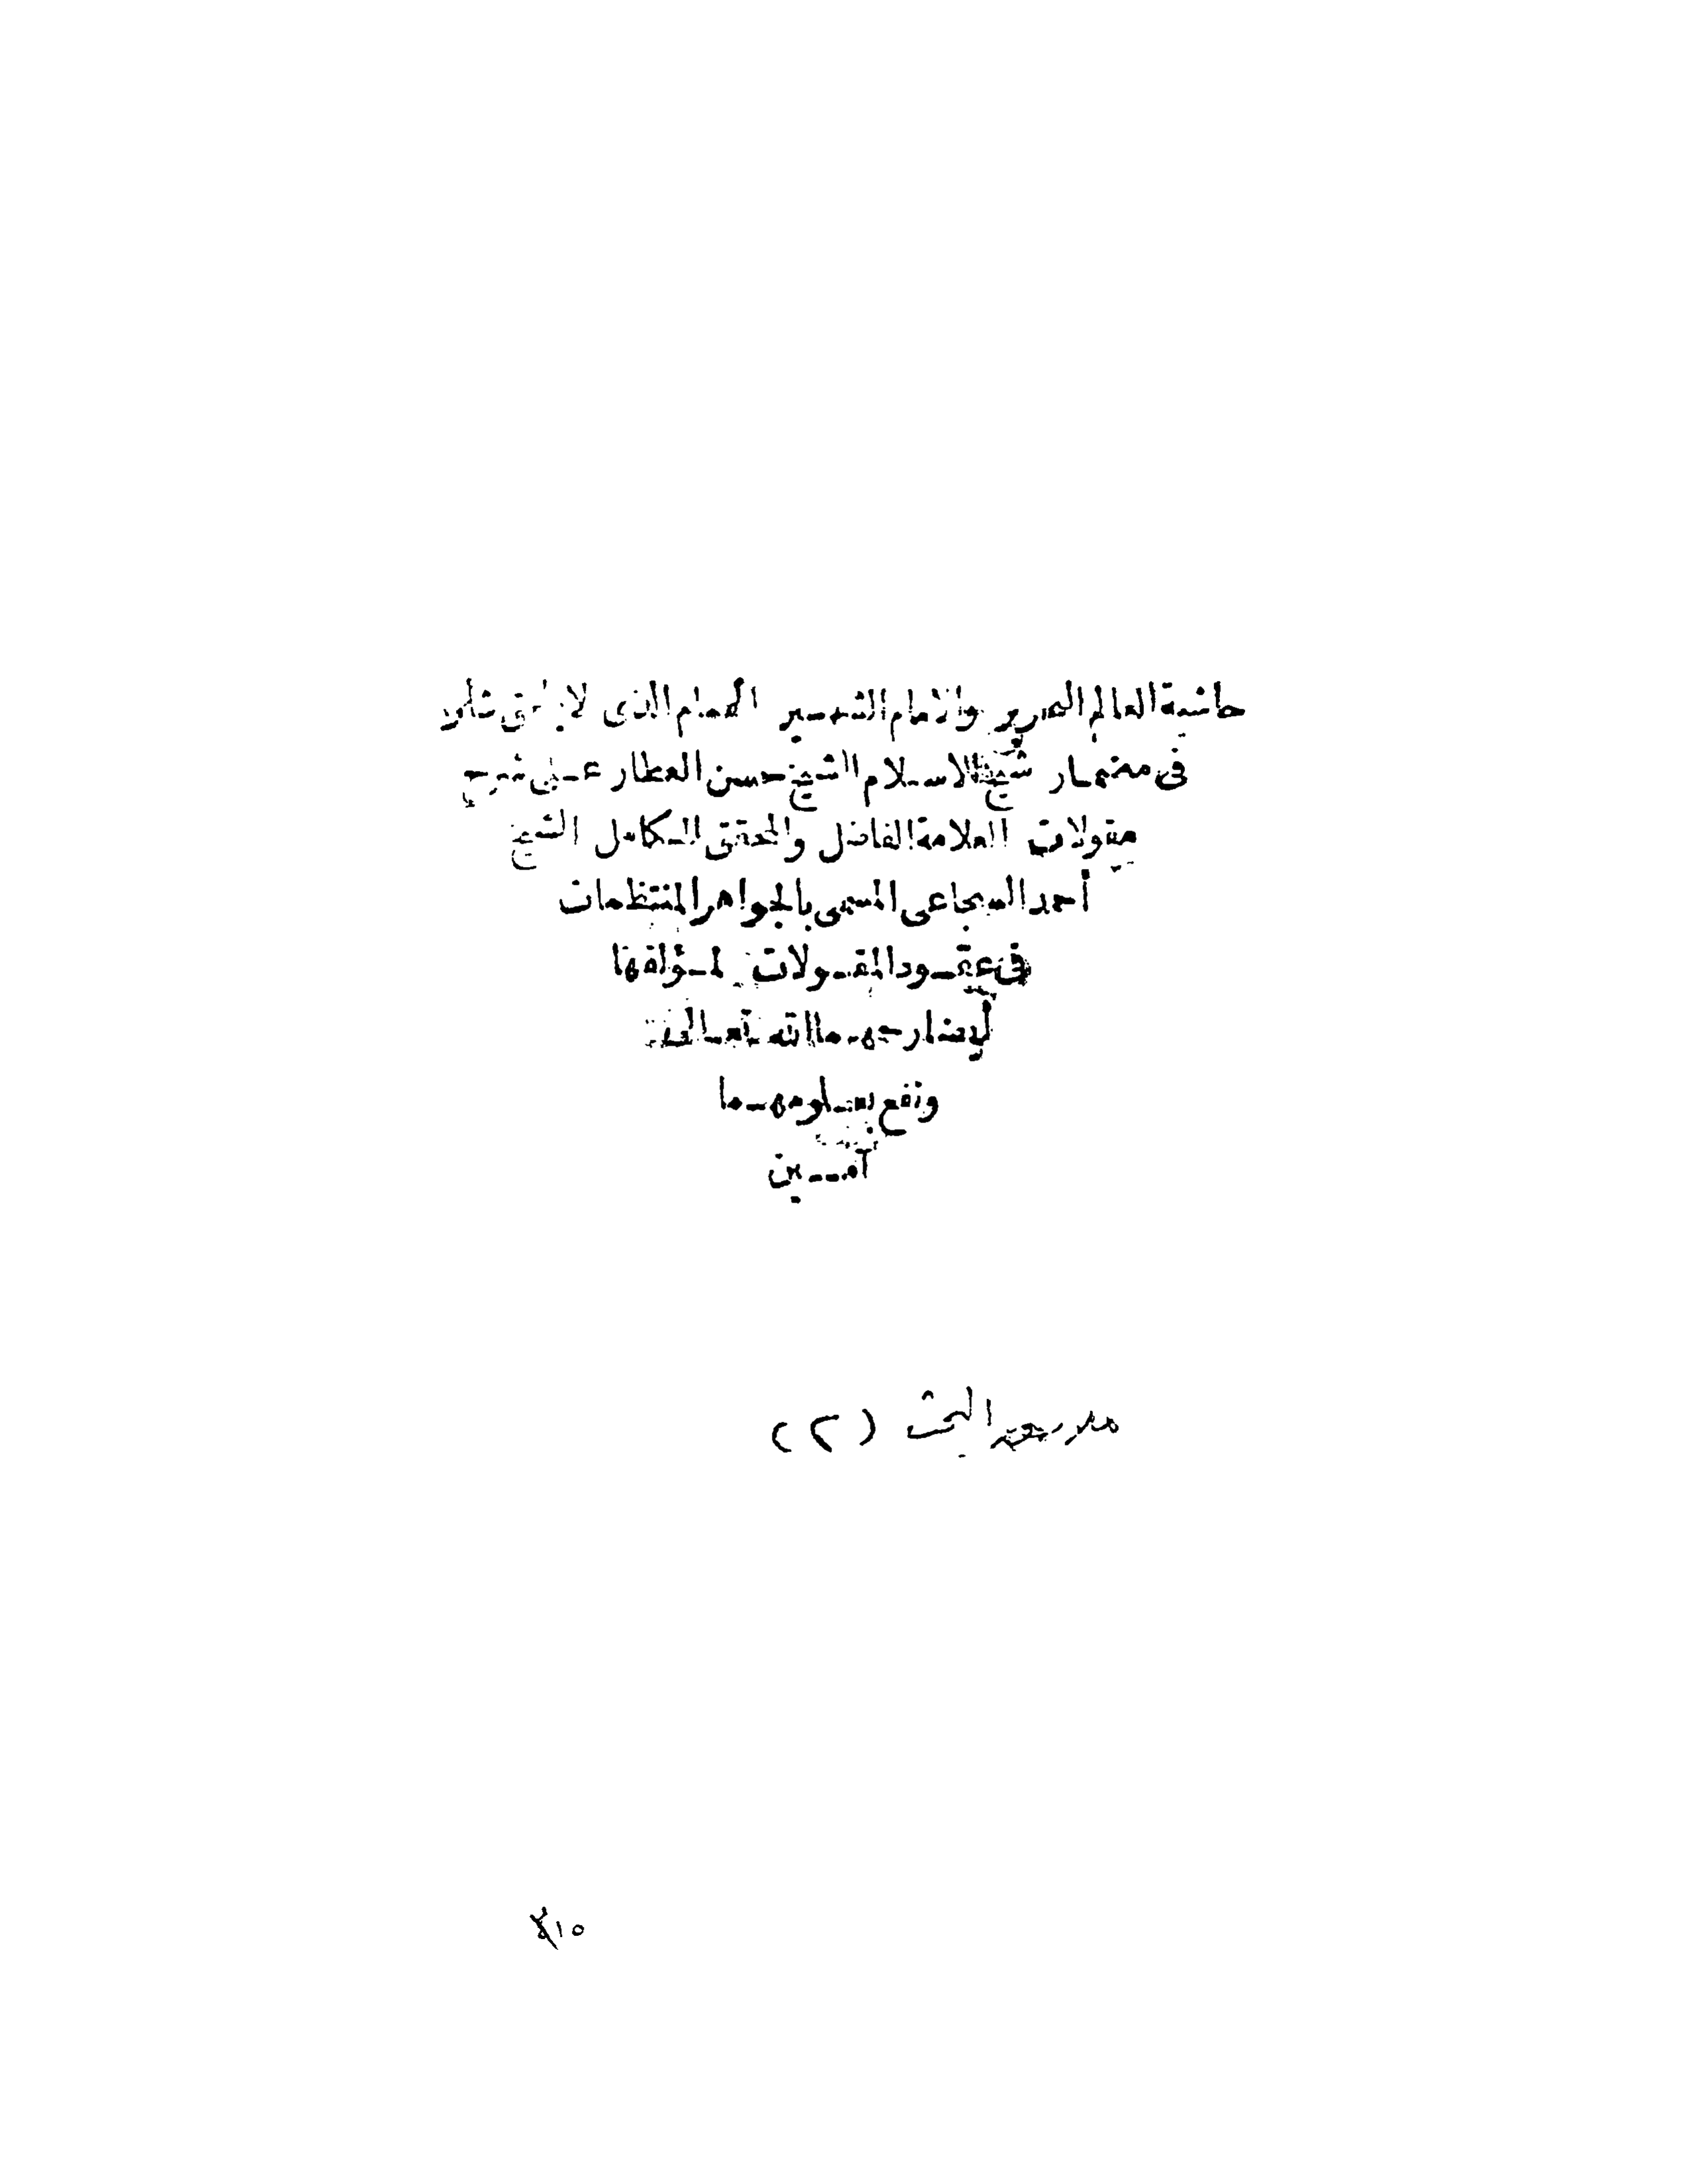 حاشية العالم النحرير والامام الشهير الهمام الذى لا يلحق شأوه
فى مضمار شيخ الاسلام الشيخ حسن العطار على شرح
مقولات العلامة الفاضل والمحقق الكامل الشيخ
أحمد السجاعى المسمى بالجواهر المنتظمات
فى عقود المقولات لمؤلفها
أيضا رحمهما الله تعالى
ونفع بعلومهما
آمين
البحث (٢)